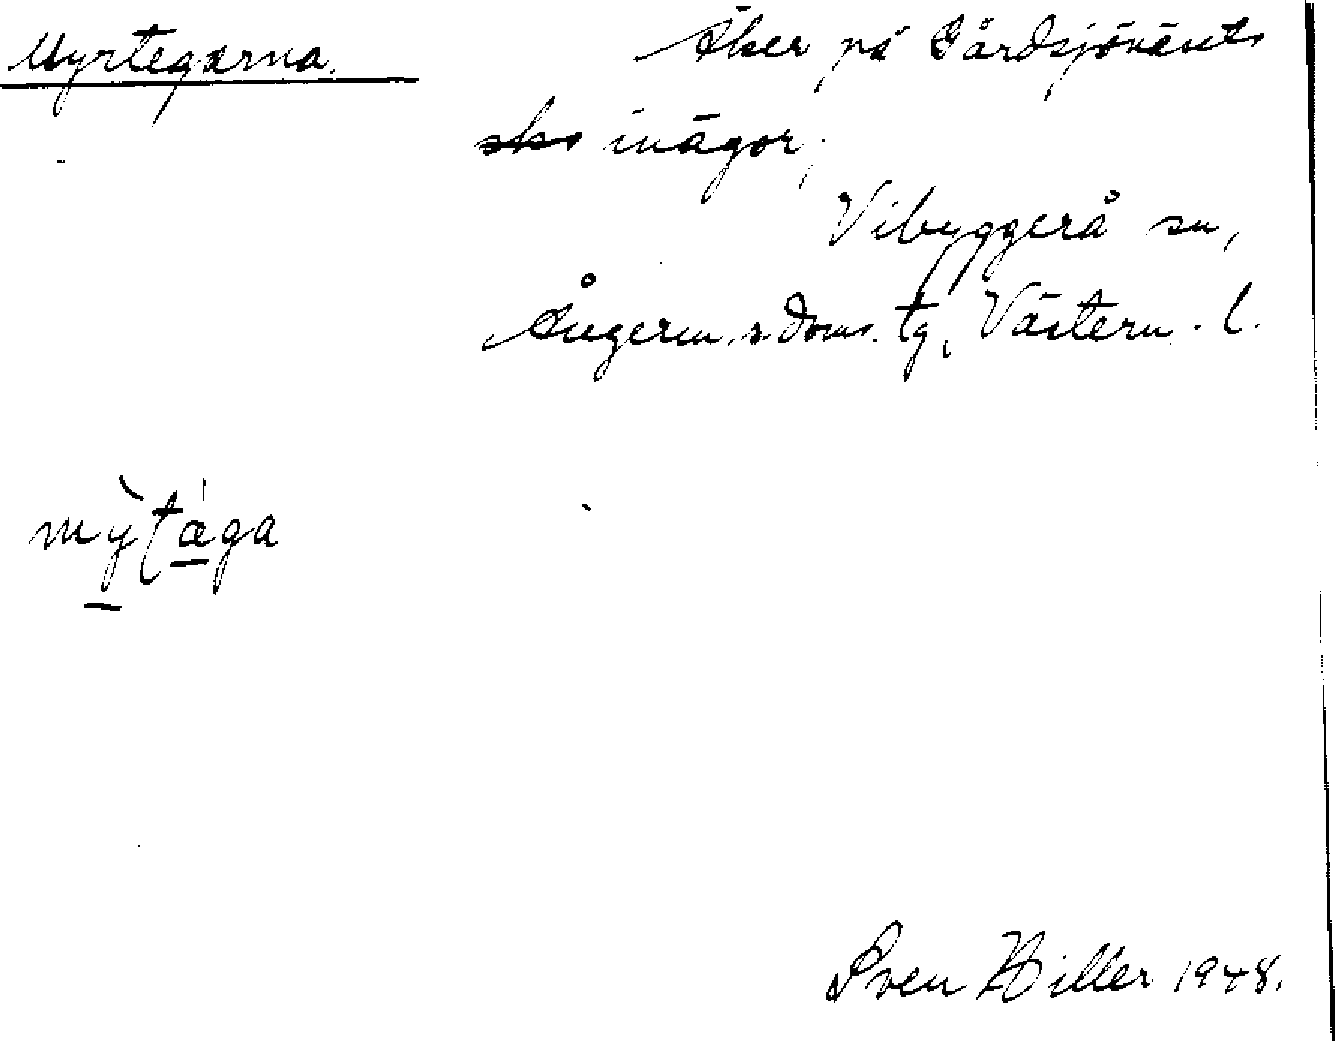 Myrtegarna.
Åker på Gårdsjönäsets
inägor,
Vibyggerå sn,
Ångerm. s. doms. tg, Västern. l.
mỳtæ̀ga
Sven Hiller 1948.